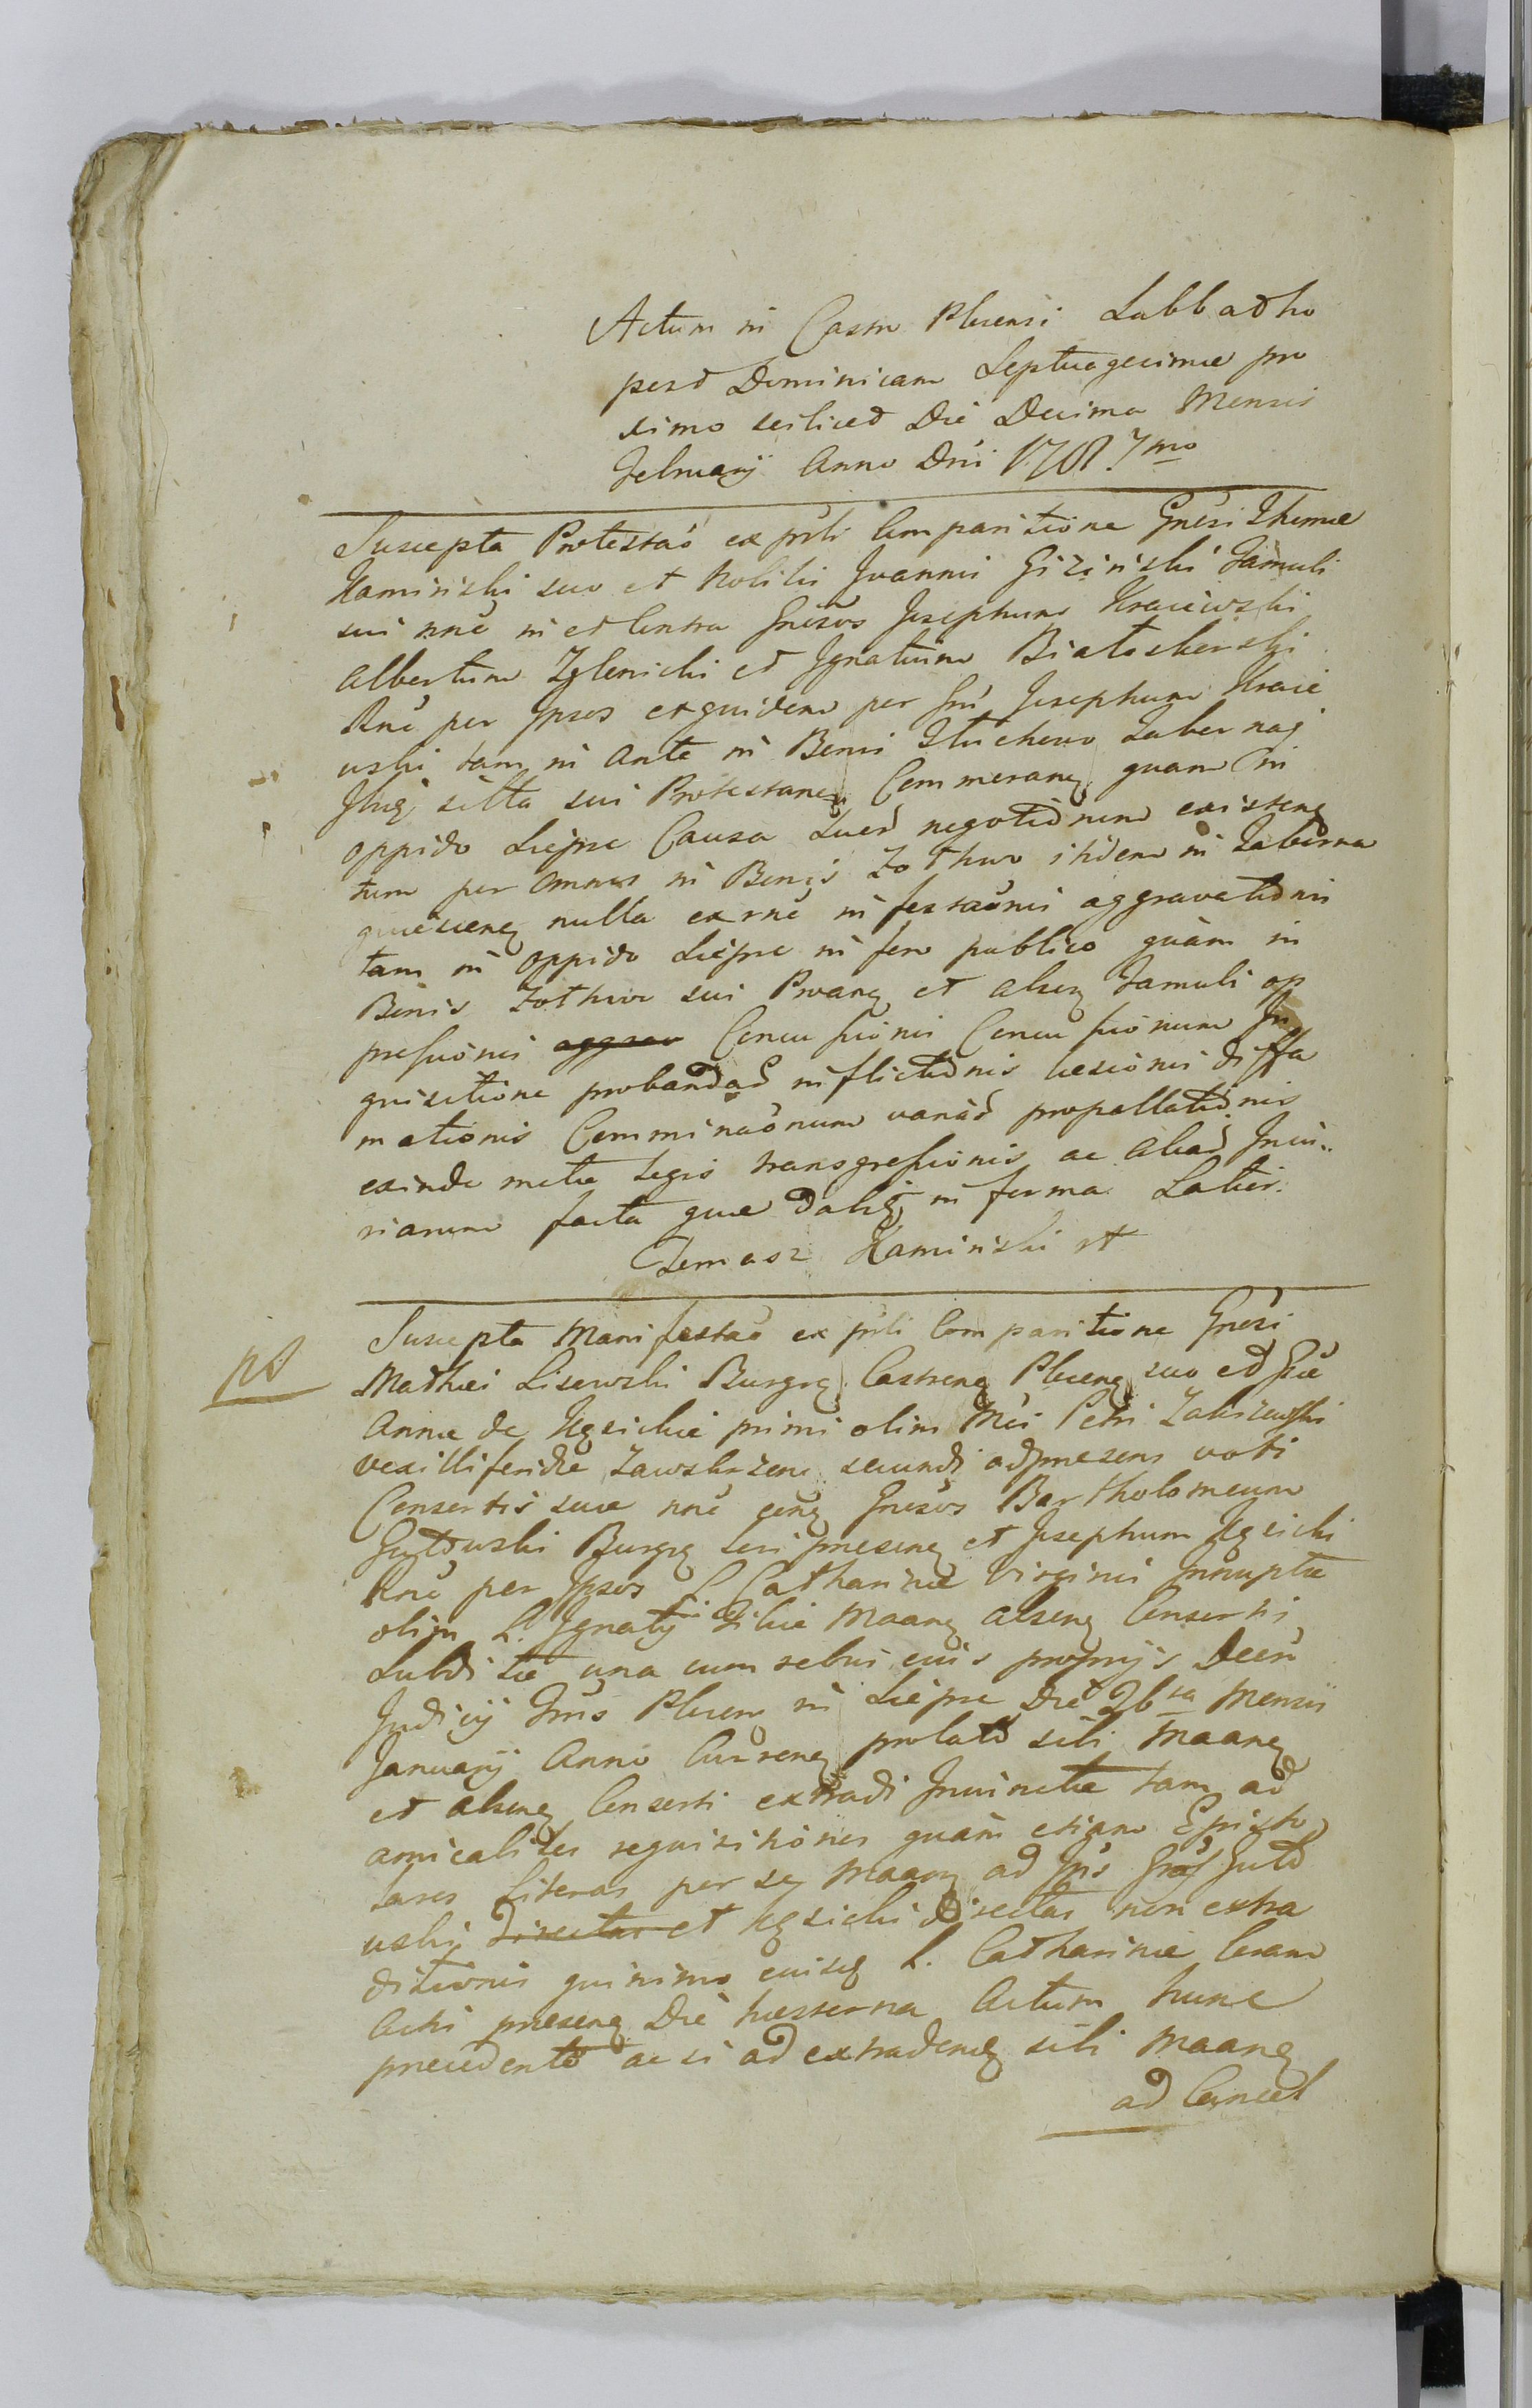 Actum in Castro Plocensi Sabbatho
post Dominicam Septuagesimae pro
ximo scilicet Die Decima Mensis
February Anno Dni 1787mo
Suscepta Protestaó ex psli Comparitione Gnési Thomae
Kaminski suo et Nobilis Joannis Gizinski Famuli
sui nné in et Contra Gnésos Josephum Kraiewski
Albertum Zglenicki et Ignatium Białoskorski
Rné per Ipsos et quidem per Gnú Josephum Kraie
wski tam in ante in Bonis Tłuchowo Tabernaq
Ibuq silta sui Protestanq Commoranq quam in
oppido Liepie Causa Suor negotionum existenq
tum per omnes in Bonis Zothwo ibidem in Taberna
quiescenq nulla ex rné in festaónis aggravationis
tam in oppido Liepie in foro publico quam in
Bonis Zothwo sui Proanq et alterq Famuli op
pressionis aggrav Concussionis Concussionum In
quisitione probandar inflictionis laesionis diffa
mationis Comminaónum variar propallationis
exinde metu Legis transgressionis ac aliar Iniu
riarum facta quae dabiq in forma Latior.
Tomasz Kaminski mp
Suscepta Manifestaó ex psli Comparitione Gnési
Mathei Lisowski Burgrq Castrenq Plocenq suo et Gnae
Annae de Kęsickie primi olim Mci Petri Zaliszewski
vexilliferidae Zawskrzenq secundi ad praesens voti
Consortis suae nné conq Gnésos Bartholomeum
Gutowski Burgrq Seri presenq et Josephum Kęsicki
Rné per Ipsos L. Catharinae Virginis Innuptae
olim L. Ignaty Filiae Maanq alsenq Consorti
Subditae una cum rebus eius proprijs Decr
Judicij Trus Plocen in Liepie Die 26ta Mensis
January Anno Currenq prolato sibi Maanq
et alsenq Consorti extradi Iniunctae tam ad
amicabiles requisitiones quam etiam Episto
lares Literas per se Maanq ad Gnós Guto
wski directas et Kęsicki directas non extra
ditionis quinimo eiusq L. Catharinae Coram
Actis presenq Die hesterna Actum hunc
precedente ac si ad extradenq sibi Maanq
ad Concel